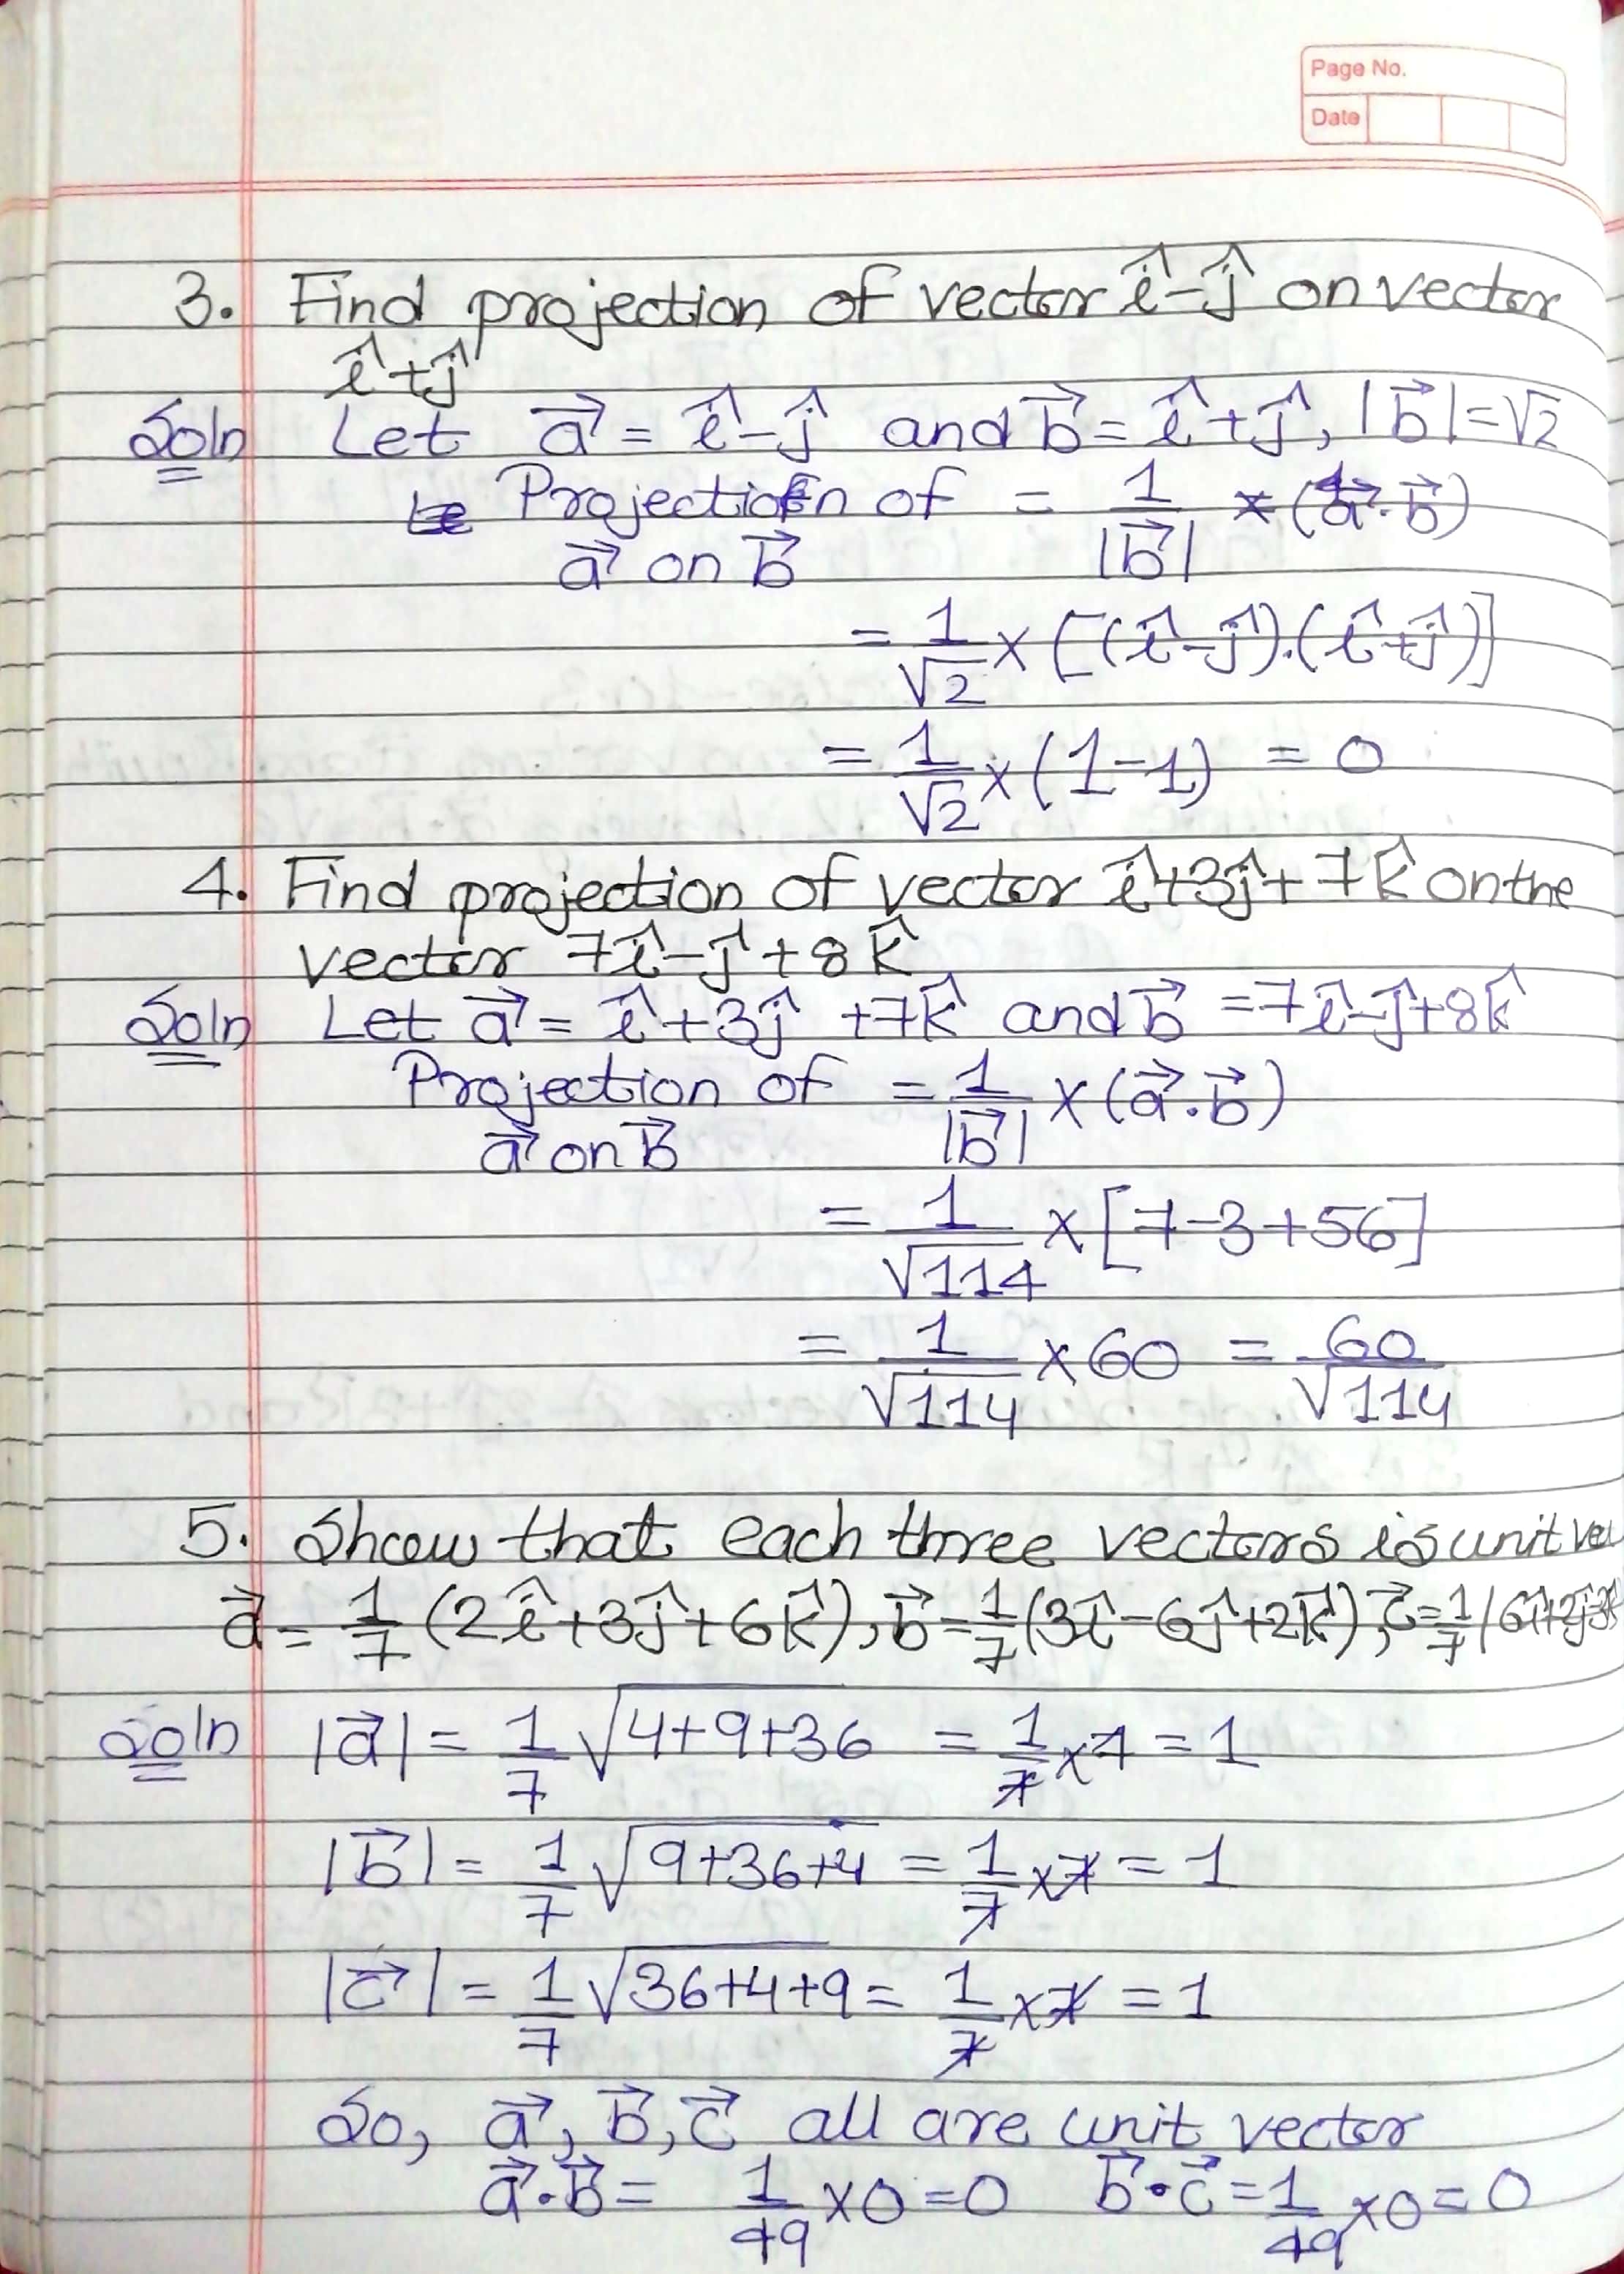 Page No.
Date
3. Find projection of vector î-ĵ on vector
î+ĵ
Soln Let a⃗ = î-ĵ and b⃗ = î+ĵ, |b⃗|=√2
Projection of = 1/|b⃗| × (a⃗.b⃗)
a⃗ on b⃗
= 1/√2 × [(î-ĵ).(î+ĵ)]
= 1/√2 × (1-1) = 0
4. Find projection of vector î+3ĵ+7k̂ on the
vector 7î-ĵ+8k̂
Soln Let a⃗ = î+3ĵ+7k̂ and b⃗ =7î-ĵ+8k̂
Projection of = 1/|b⃗| × (a⃗.b⃗)
a⃗ on b⃗
= 1/√114 × [7-3+56]
= 1/√114 × 60 = 60/√114
5. Show that each three vectors is unit
a⃗ = 1/7 (2î+3ĵ+6k̂), b⃗ = 1/7 (3î-6ĵ+2k̂), c⃗ = 1/7 (6î+2ĵ-3k̂
Soln |a⃗| = 1/7 √4+9+36 = 1/7 × 7 = 1
|b⃗| = 1/7 √9+36+4 = 1/7 × 7 = 1
|c⃗| = 1/7 √36+4+9 = 1/7 × 7 = 1
So, a⃗, b⃗, c⃗ all are unit vector
a⃗.b⃗ = 1/49 × 0 = 0 b⃗.c⃗ = 1/49 × 0 = 0